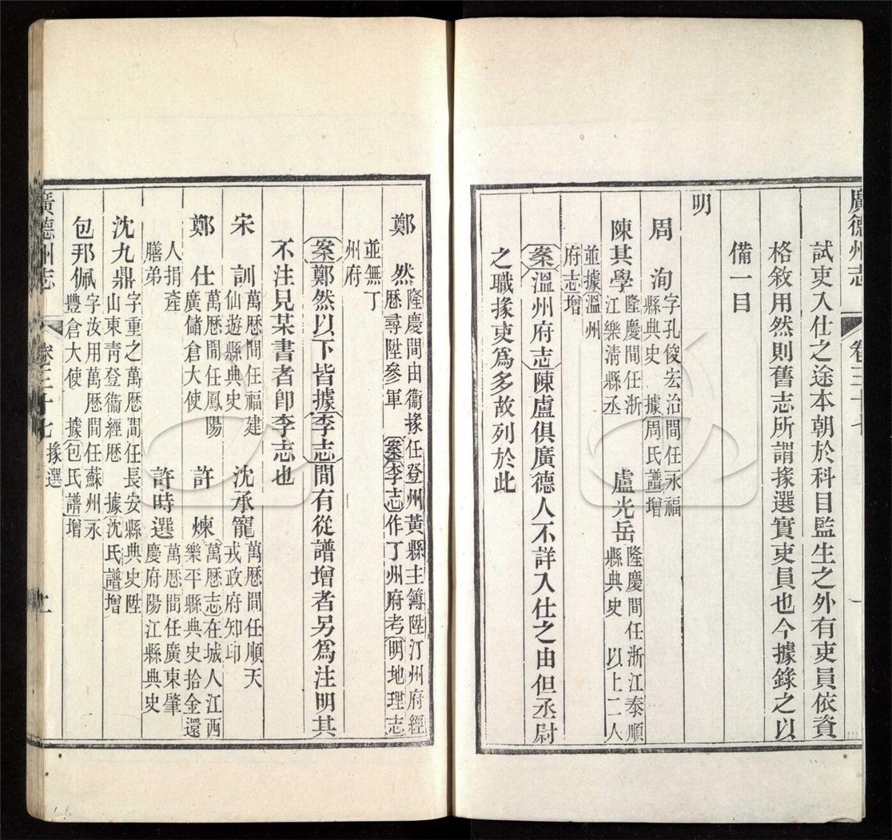 廣德州志
卷三十七
一
試吏入仕之途本朝於科目監生之外有吏員依資
格敘用然則舊志所謂掾選實吏員也今據錄之以
備一目
明
周洵字孔俊宏治間任永福
縣典史 據周氏譜增
陳其學隆慶間任浙
江樂清縣丞
盧光岳隆慶間任浙江泰順
縣典史 以上二人
並據溫州
府志增
案溫州府志陳盧俱廣德人不詳入仕之由但丞尉
之職掾吏爲多故列於此
鄭然隆慶間由衞掾任登州黃縣主簿陞汀州府經
歷尋陞參軍 案李志作丁州府考明地理志
並無丁
州府
案鄭然以下皆據李志間有從譜增者另爲注明其
不注見某書者卽李志也
宋訓萬歷間任福建
仙遊縣典史
沈承寵萬歷間任順天
戎政府知印
鄭仕萬歷間任鳳陽
廣儲倉大使
許煉萬歷志在城人江西
樂平縣典史拾金還
人捐產
膳弟
許時選萬歷間任廣東肇
慶府陽江縣典史
沈九鼎字重之萬歷間任長安縣典史陞
山東靑登衞經歷 據沈氏譜增
包邦佩字汝用萬歷間任蘇州永
豐倉大使 據包氏譜增
廣德州志
卷三十七
掾選